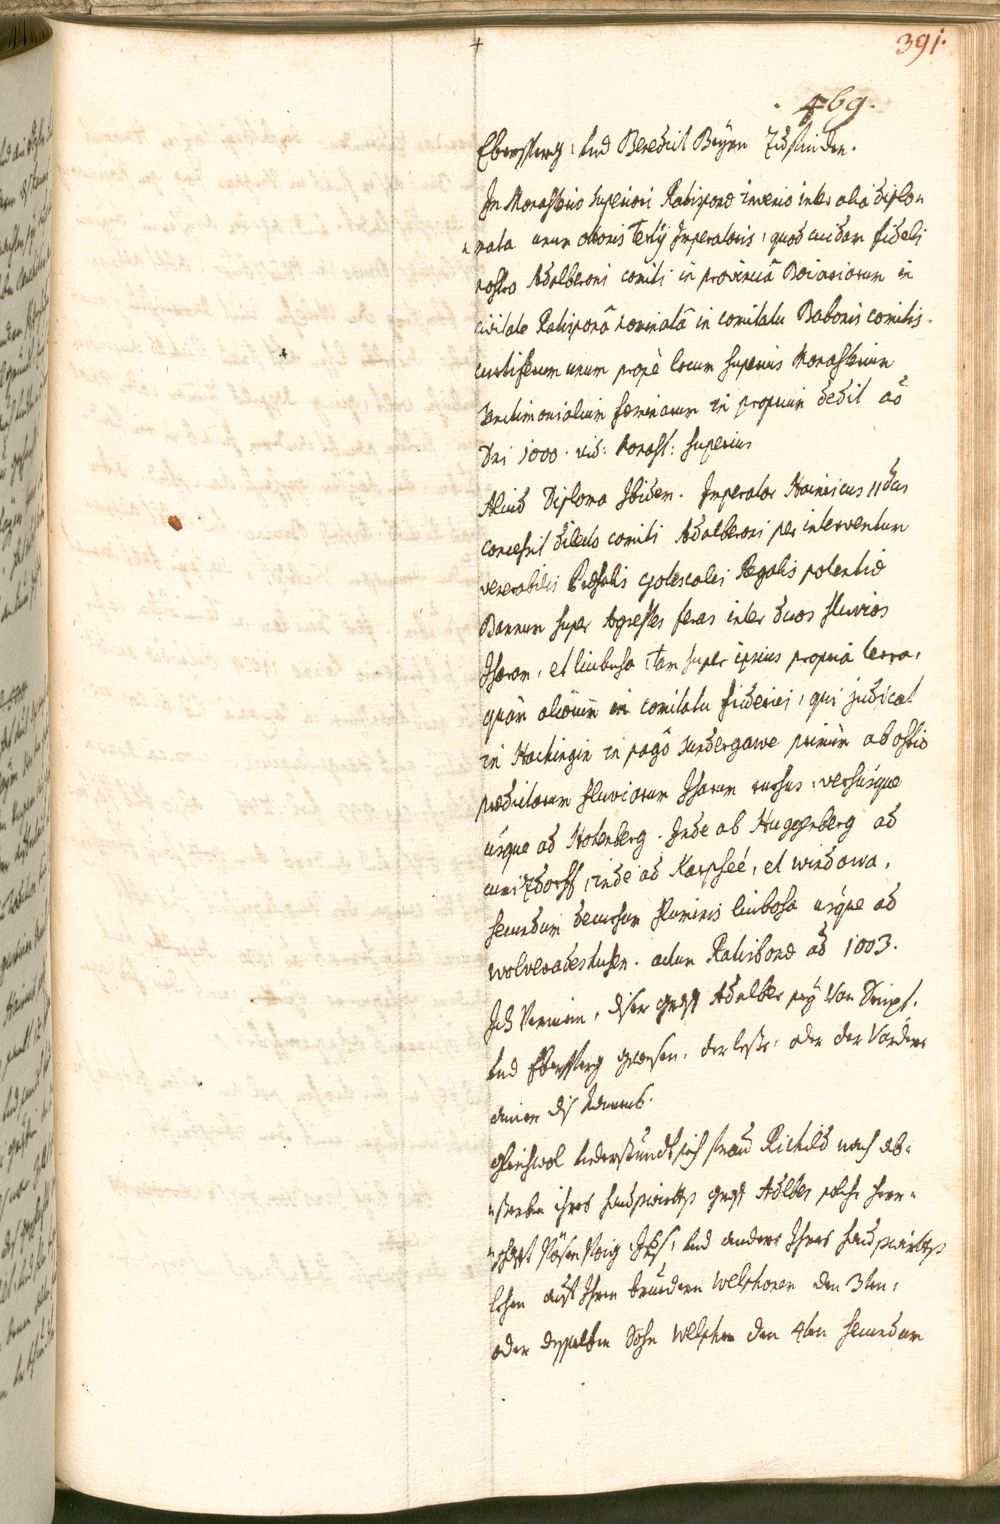 391.
469.
Ebersperg, und Benedict Beyrn Zustunden.
In Monasterio superiori Ratisponæ invenio inter alia diplo-
mata unum ottonis tertij Imperatoris, quod cuidam fideli
nostro Adalberoni comiti in provinciâ Boiariorum in
civitate Ratisponâ nominatâ in comitatu Babonis comitis
curtiferum unum propè locum superius Monasterium
sanctimonialium fœminarum in proprium dedit aõ
Dni 1000. vid: Monast: superius
Aliud Diploma Ibidem. Imperator Hainricus 11dus
concessit dilecto comiti Adalberoni per interventum
venerabilis Præsulis Gotescalci Regalis potentiæ
Bannum super Agrestes feras inter duos fluvios
Isaram, et liubasa tam super ipsius propria terra,
quàm aliorum in comitatu friderici, qui judicat
in Hachingin in pagô sundergawe primùm ab ostio
prædictorum fluviorum Isaram rursus, versúsque
usque ad Hohenberg. Inde ab Huggenberg ad
cunizdorff, inde ad Karpfseé, et windowa,
secundum decursum fluminis liubasa usque ad
wolveradeshusen. actum Ratisbonæ aõ 1003.
Ich Vermein, diser graff Adalber seÿ Von Sempt,
und Ebersperg gewesen, der leste, oder der Vordere
ainer diß Namens.
gleichwol understundt sich fraw Richild nach ab-
sterben ihres haußwirths graff Adlber solche herr-
schafft und andere Ihres haußwirths
lehen auf Ihren bruedern Welphonen den 3ten,
oder desselben Sohn Welphen den 4ten secundum